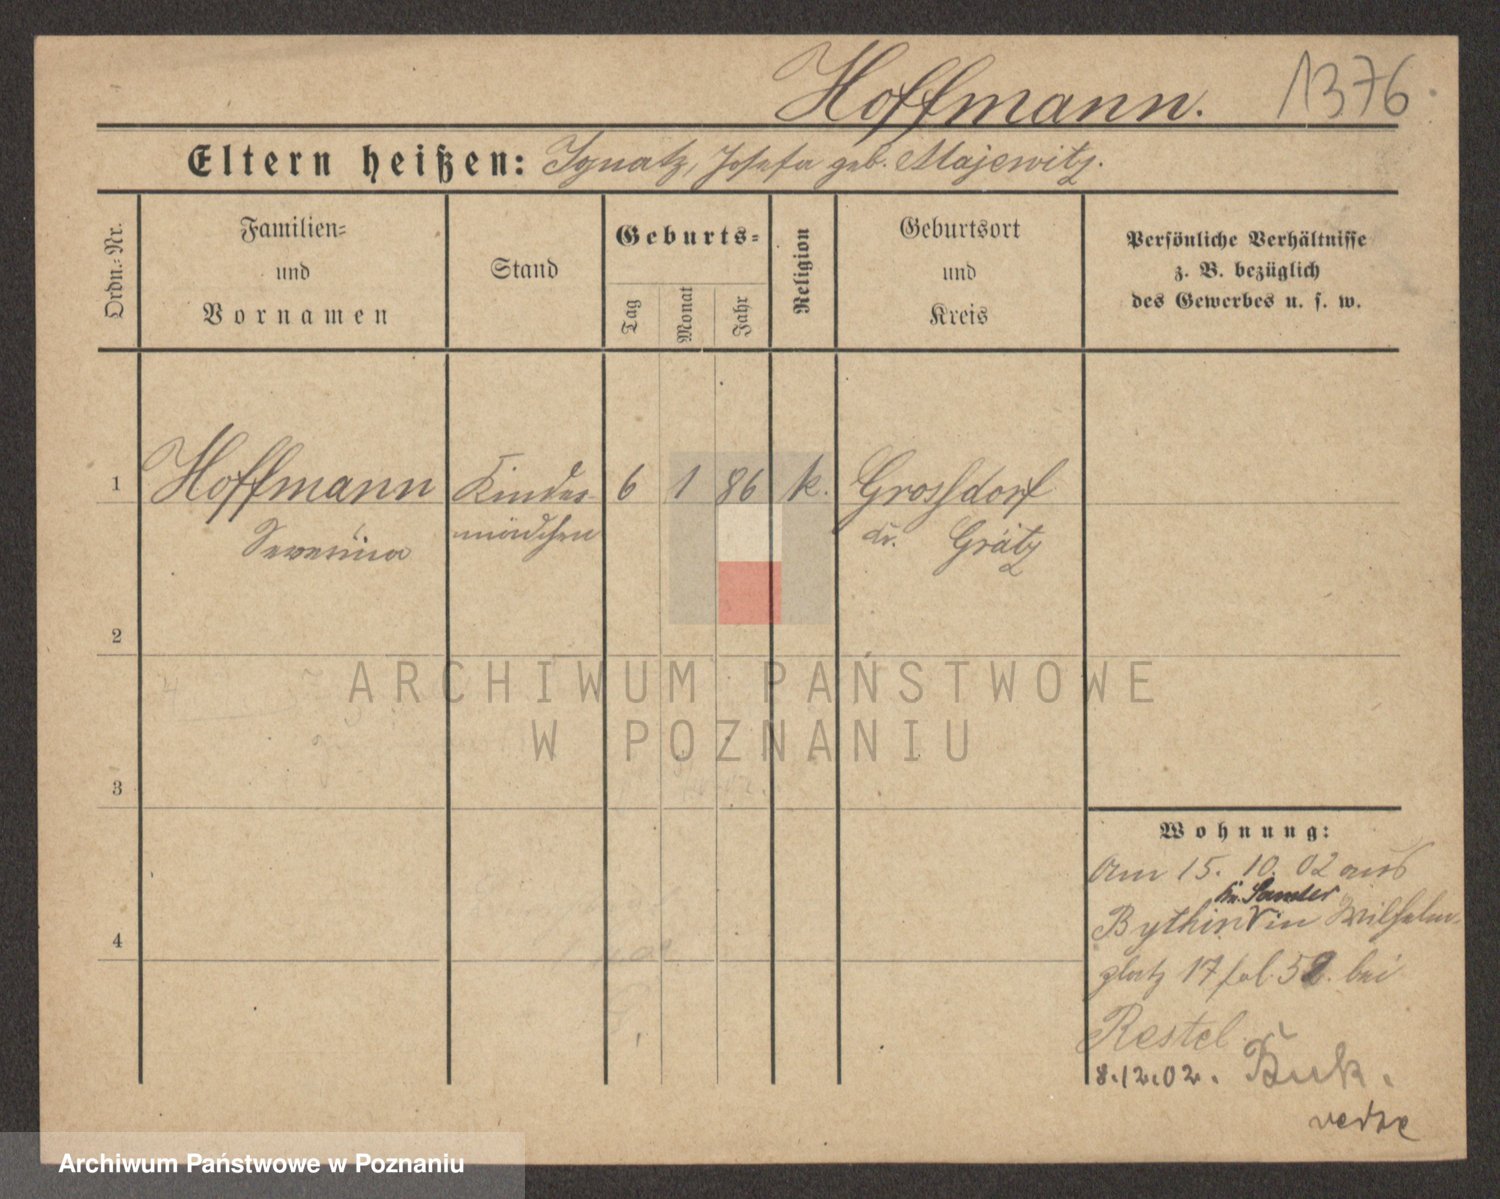 Hoffmann. 1376
Eltern heißen: Ignatz, Josefa geb. Majewitz.
Ordn.-Nr.
Familien-
und
Vornamen
Stand
Geburts-
Tag
Monat
Jahr
Religion
Geburtsort
und
Kreis
Persönliche Verhältnisse
z. B. bezüglich
des Gewerbes u. s. w.
1 Hoffmann Kinder- 6 1 86 k. Grossdorf
Severina mädchen Kr. Grätz
2
ARCHIWUM PAŃSTWOWE
W POZNANIU
3
Wohnung:
Am 15. 10. 02 aus
Kr. Samter
Bythin in Wilhelm-
platz 17 fol. 52. bei
Restel
8.12.02. Buk.
4
Archiwum Państwowe w Poznaniu